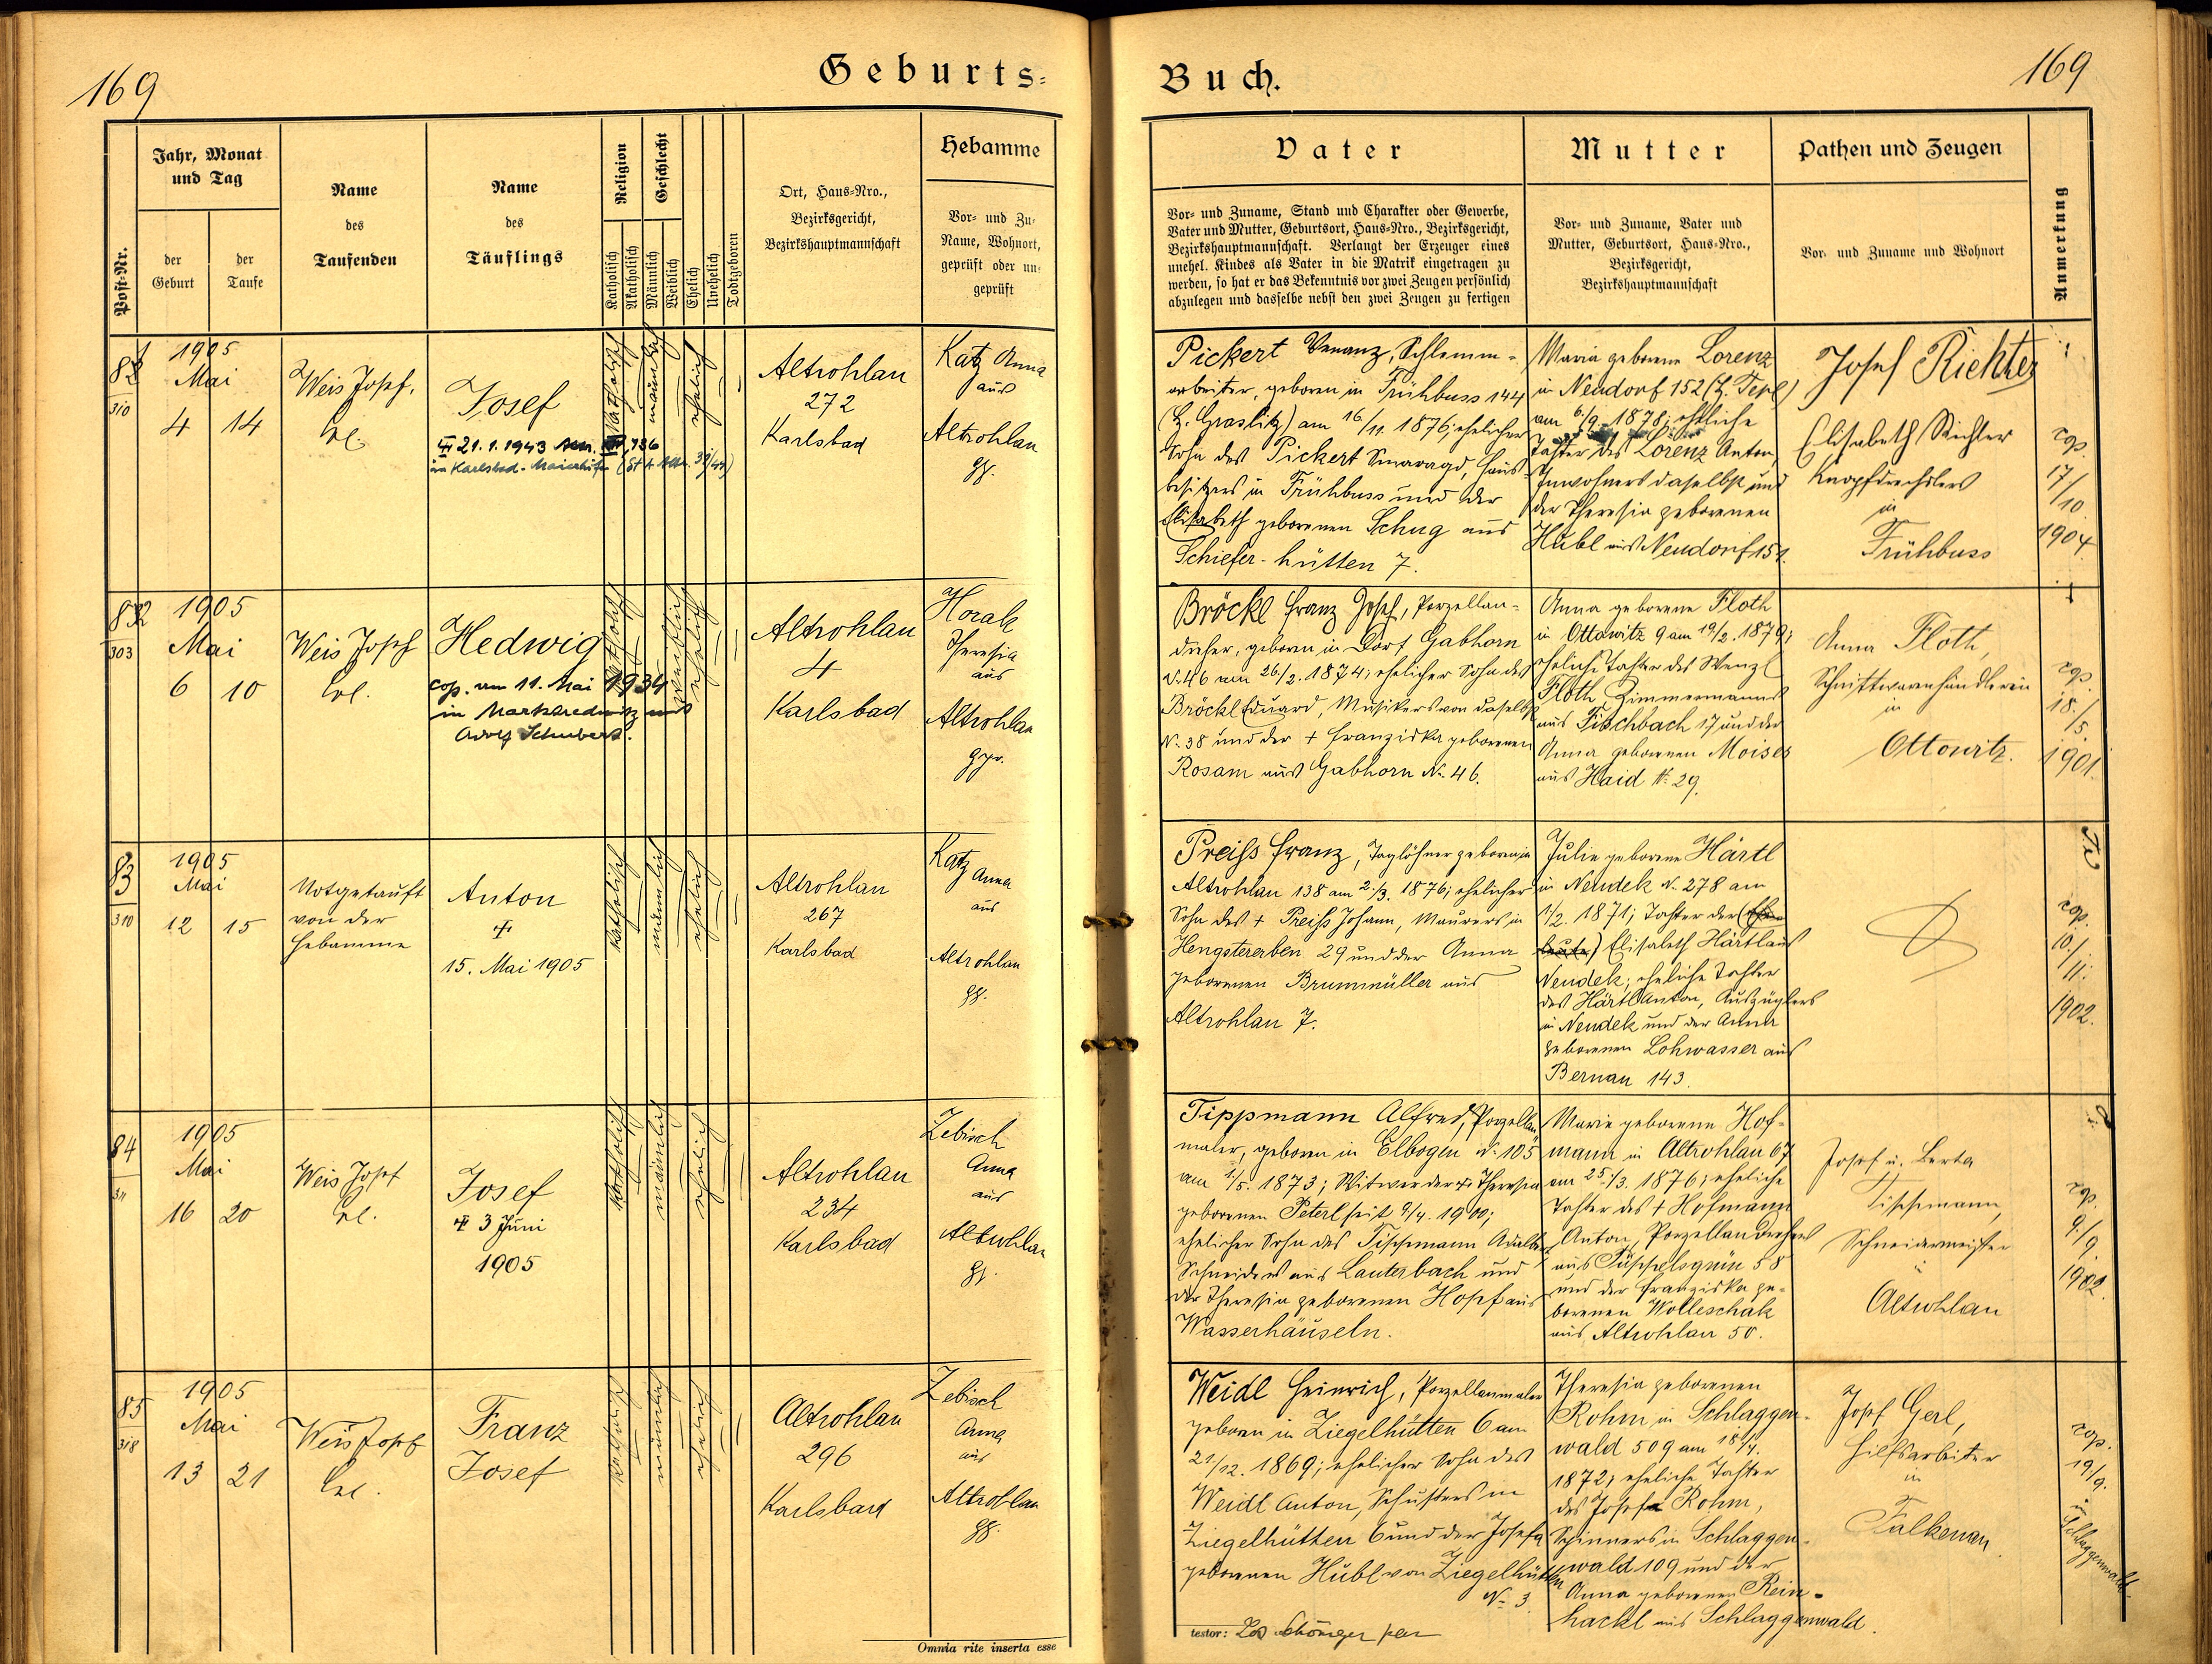 169
Geburts-
Buch.
169
Post-Nr.
Jahr, Monat
und Tag
der
Geburt
der
Taufe
Name
des
Taufenden
Name
des
Täuflings
Religion
Katholisch
Akatholisch
Geschlecht
Männlich
Weiblich
Ehelich
Unehelich
Todtgeboren
Ort, Haus-Nro.,
Bezirksgericht,
Bezirkshauptmannschaft
Hebamme
Vor- und Zu-
Name, Wohnort,
geprüft oder un-
geprüft
Vater
Vor- und Zuname, Stand und Charakter oder Gewerbe,
Vater und Mutter, Geburtsort, Haus-Nro., Bezirksgericht,
Bezirkshauptmannschaft. Verlangt der Erzeuger eines
unehel. Kindes als Vater in die Matrik eingetragen zu
werden, so hat er das Bekenntnis vor zwei Zeugen persönlich
abzulegen und dasselbe nebst den zwei Zeugen zu fertigen
Mutter
Vor- und Zuname, Vater und
Mutter, Geburtsort, Haus-Nro.,
Bezirksgericht,
Bezirkshauptmannschaft
Pathen und Zeugen
Vor- und Zuname und Wohnort
Anmerkung
310
1905
Mai
4 14
Weis Josef,
Josef
21.1.1943
in Karlsbad-Maierhöfen
katholisch
männlich
ehelich
Altrohlau
272
Karlsbad
Katz Anna
aus
Altrohlau
Pickert Venanz, Schlemm-
arbeiter, geboren in Frühbuss 144
(B. Graslitz) am 16/11. 1876; ehelicher
Sohn des Pickert Smaragd, Haus-
besitzers in Frühbuss und der
Elisabeth geborenen Schug aus
Schiefer-hütten 7.
Maria geborene Lorenz
in Neudorf 152 (B. Tepl)
am 6/9. 1878; eheliche
Tochter des Lorenz Anton,
Inwohners daselbst und
der Theresia geborenen
Hubl aus Neudorf 151.
Josef Richter
Elisabeth Richter
Knopfdrechslers
in
Frühbuss
cop.
17/10
1904
82
303
1905
Mai
6 10
Weis Josef
Hedwig
cop. am 11. Mai 1934
in Marktredwitz mit
Adolf Schubert.
katholisch
weiblich
ehelich
Altrohlau
4
Karlsbad
Horak
Theresia
aus
Altrohlau
gepr.
Bröckl Franz Josef, Porzellan-
dreher, geboren in Dorf Gabhorn
N. 46 am 26/2. 1874; ehelicher Sohn des
Bröckl Eduard, Musikers von daselbst
N. 38 und der + Franziska geborenen
Rosam aus Gabhorn N. 46.
Anna geborene Floth
in Ottowitz 9 am 19/2. 1879;
eheliche Tochter des Wenzl
Floth Zimmermanns
aus Fischbach 17 und der
Anna geborenen Moises
aus Haid N. 29.
Anna Floth,
Schnittwarenhändlerin
in
Ottowitz.
cop.
18./5.
1901.
83
310
1905
Mai
12 15
Notgetauft
von der
Hebamme
Anton
15. Mai 1905
katholisch
männlich
ehelich
Altrohlau
267
Karlsbad
Katz Anna
aus
Altrohlau
Preiss Franz, Taglöhner geboren in
Altrohlau 138 am 2./3. 1876; ehelicher
Sohn des + Preiss Johann, Maurers in
Hengstererben 29 und der Anna
geborenen Brummüller aus
Altrohlau 7.
Julie geborene Härtl
in Neudek N. 278 am
1/2. 1871; Tochter der
Elisabeth Härtl aus
Neudek; eheliche Tochter
des Härtl Anton, Auszüglers
in Neudek und der Anna
geborenen Lohwasser aus
Bernau 143.
cop.
10./11.
1902.
84
311
1905
Mai
16 20
Weis Josef
Josef
3 Juni
1905
katholisch
männlich
ehelich
Altrohlau
234
Karlsbad
Zebisch
Anna
aus
Altrohlau
Tippmann Alfred, Porzellan
maler, geboren in Elbogen N. 105
am 1/5. 1873; Witwer der + Theresia
geborenen Peterl seit 9/4. 1900;
ehelicher Sohn des Tippmann Adalbert
Schneiders aus Lauterbach und
der Theresia geborenen Hopf aus
Wasserhäuseln.
Marie geborene Hof-
mann in Altrohlau 67
am 25./3. 1876; eheliche
Tochter des + Hofmann
Anton, Porzellandrehers
aus Tüppelsgrün 58
und der Franziska ge-
borenen Wolleschak
aus Altrohlau 50.
Josef u. Berta
Tippmann,
Schneidermeister
in
Altrohlau
cop.
9/9.
1902.
85
318
1905
Mai
13 21
Weis Josef
Franz
Josef
katholisch
männlich
ehelich
Altrohlau
296
Karlsbad
Zebisch
Anna
aus
Altrohlau
Weidl Heinrich, Porzellanmaler
geboren in Ziegelhütten 6 am
21/12. 1869; ehelicher Sohn des
Weidl Anton, Schusters in
Ziegelhütten 6 und der Josefa
geborenen Hübl von Ziegelhütten
N. 3
Theresia geborenen
Rohm in Schlaggen-
wald 509 am 18/4.
1872; eheliche Tochter
des Josef Rohm,
Spinners in Schlaggen-
wald 109 und der
Anna geborenen Rein-
hackl aus Schlaggenwald.
Josef Gerl,
Hilfsarbeiter
in
Falkenau
cop.
19/9.
in
Schlaggenwald
Omnia rite inserta esse
testor: